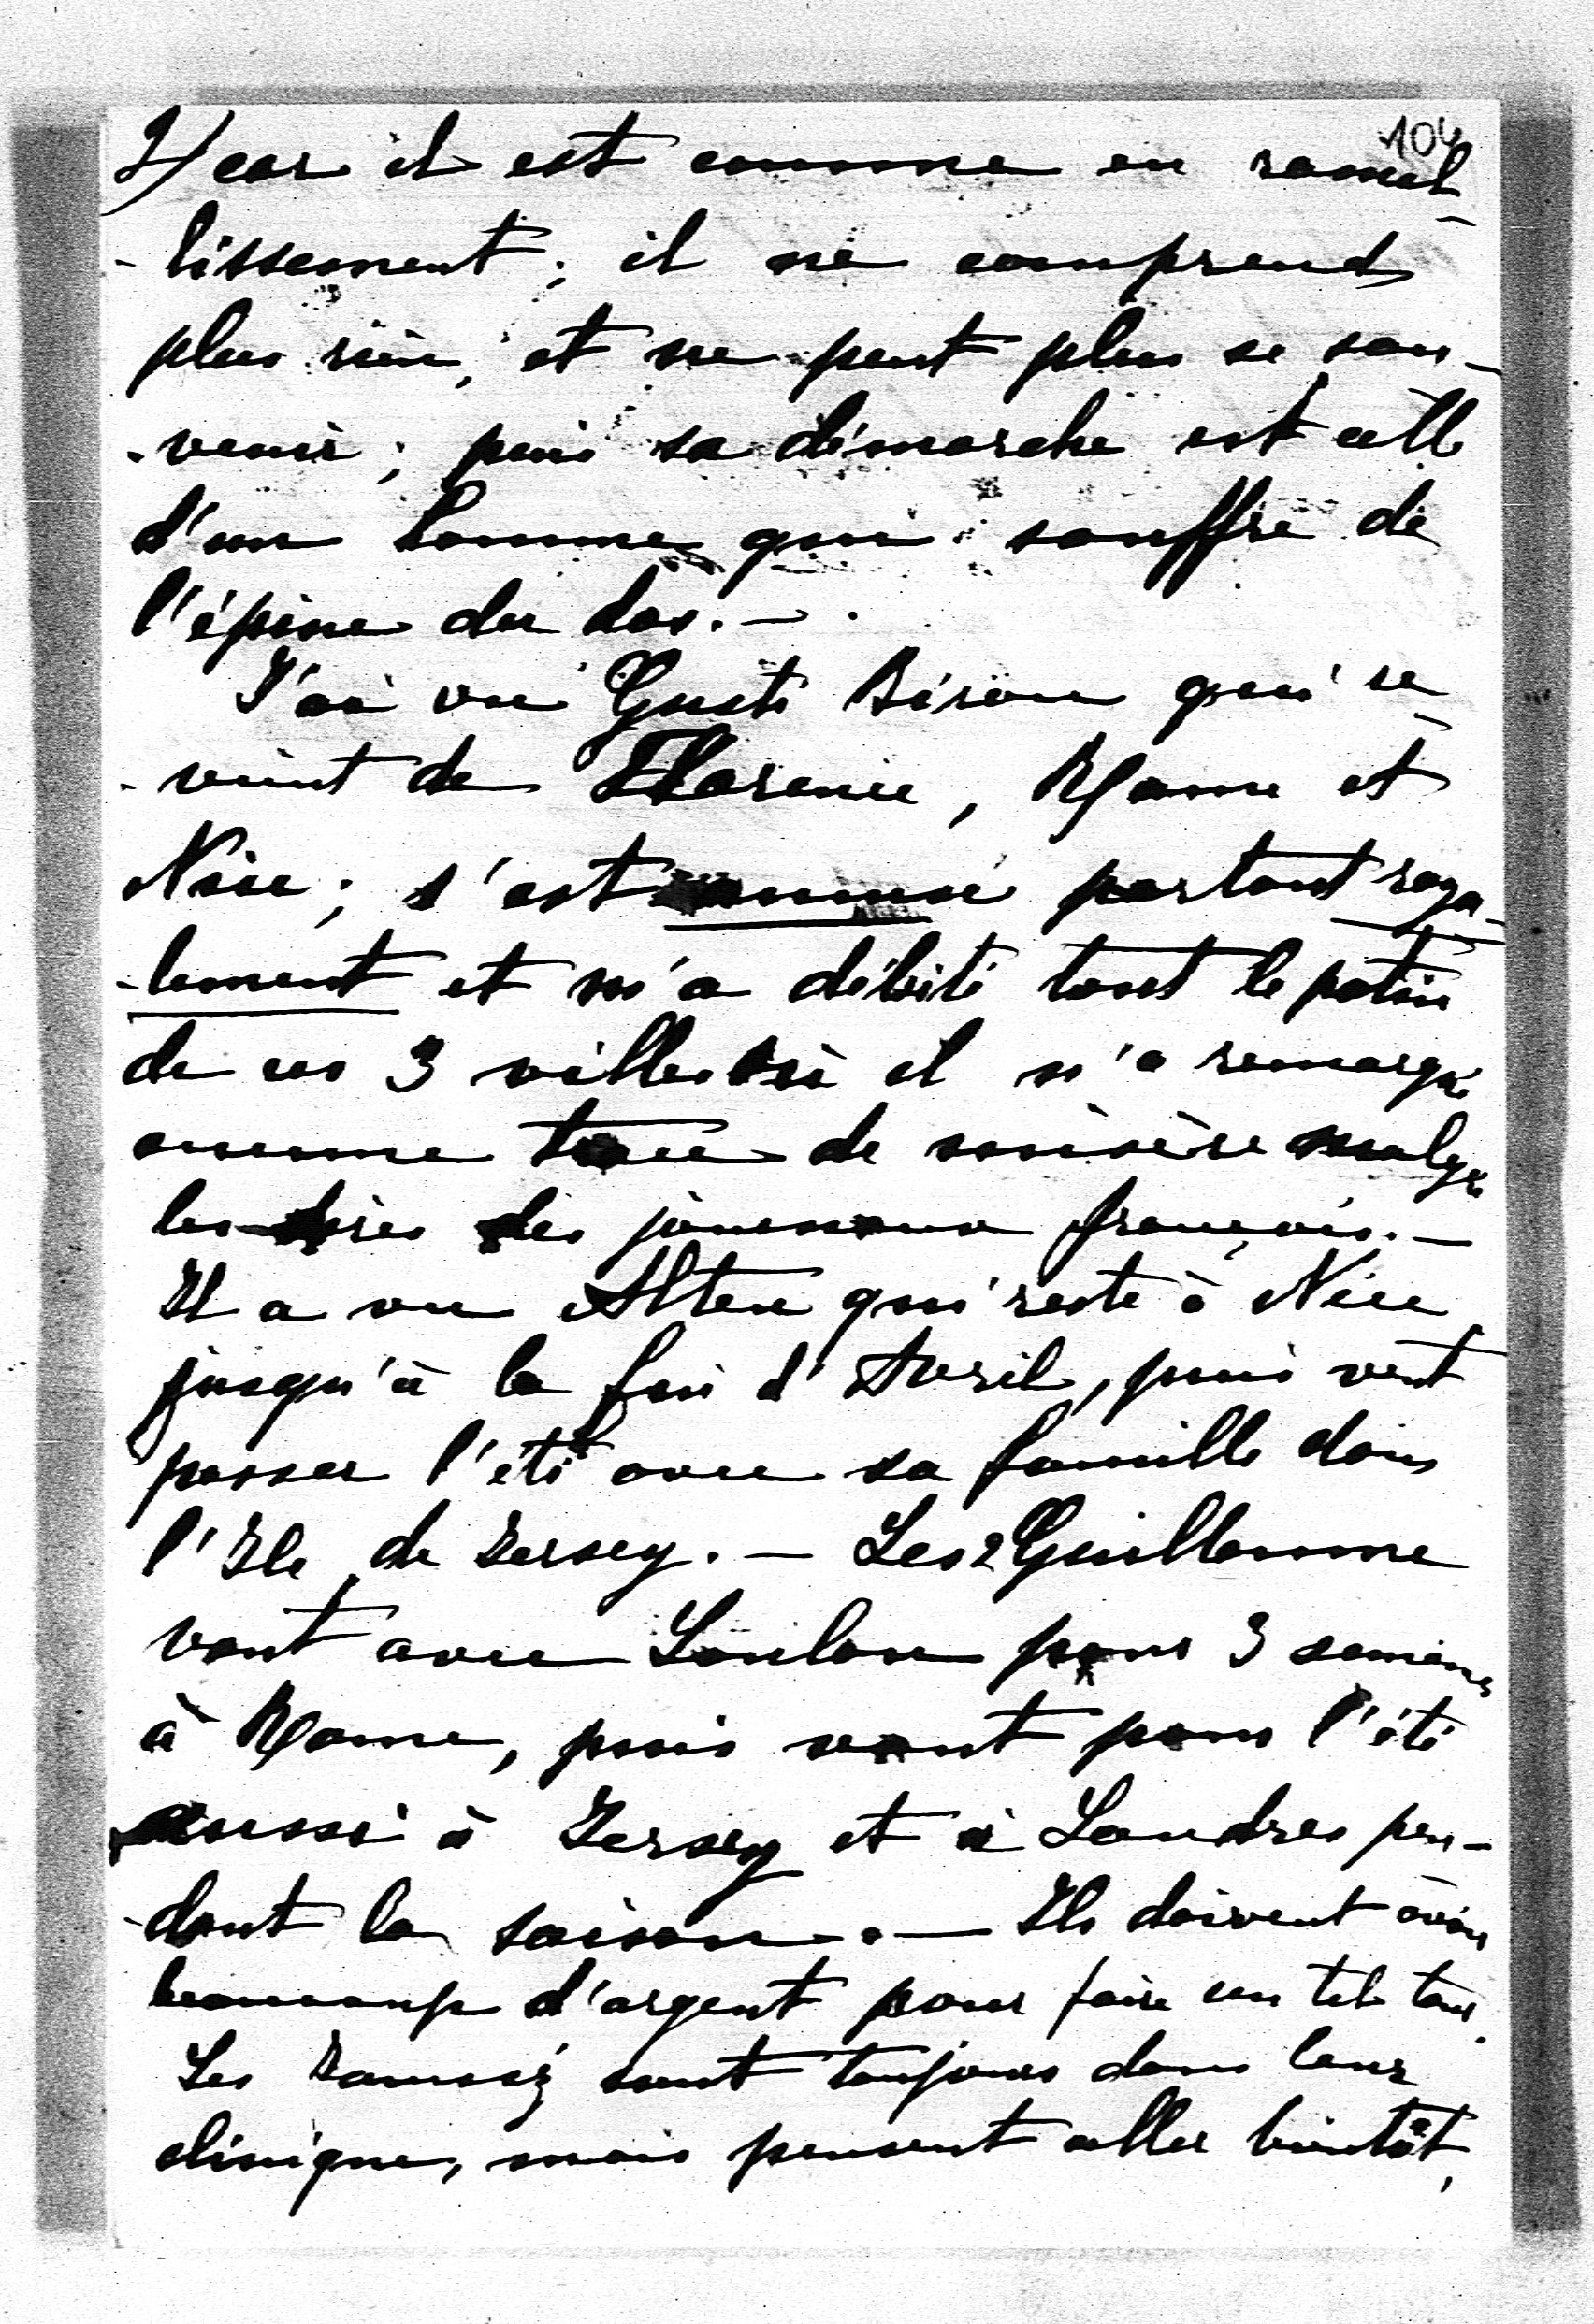 104
2/ car il est comme en ramol-
-lissement; il ne comprend
plus rien, et ne peut plus se sou-
-venir; puis sa démarche est celle
d'un homme qui souffre de
l'épine du dos. —
J'ai vu Gusti qui re-
-vient de Florence, Rome et
Nice; s'est amusé partout roya-
-lement et m'a débité tout le potin
de ces 3 villes où il n'a remarqué
aucune trace de misère malgré
les dires des journaux français. —
Il a vu Alten qui reste à Nice
jusqu'à la fin d'Avril, puis veut
passer l'été avec sa famille dans
l'Ile de Jersey. — Les 2 Guillaume
vont avec Loulou pour 3 semaines
à Rome, puis vont pour l'été
aussi à Jersey et à Londres pen-
-dant la saison. — Ils doivent avoir
beaucoup d'argent pour faire un tel tour.
Les sont toujours dans leur
clinique, mais pensent aller bientôt,